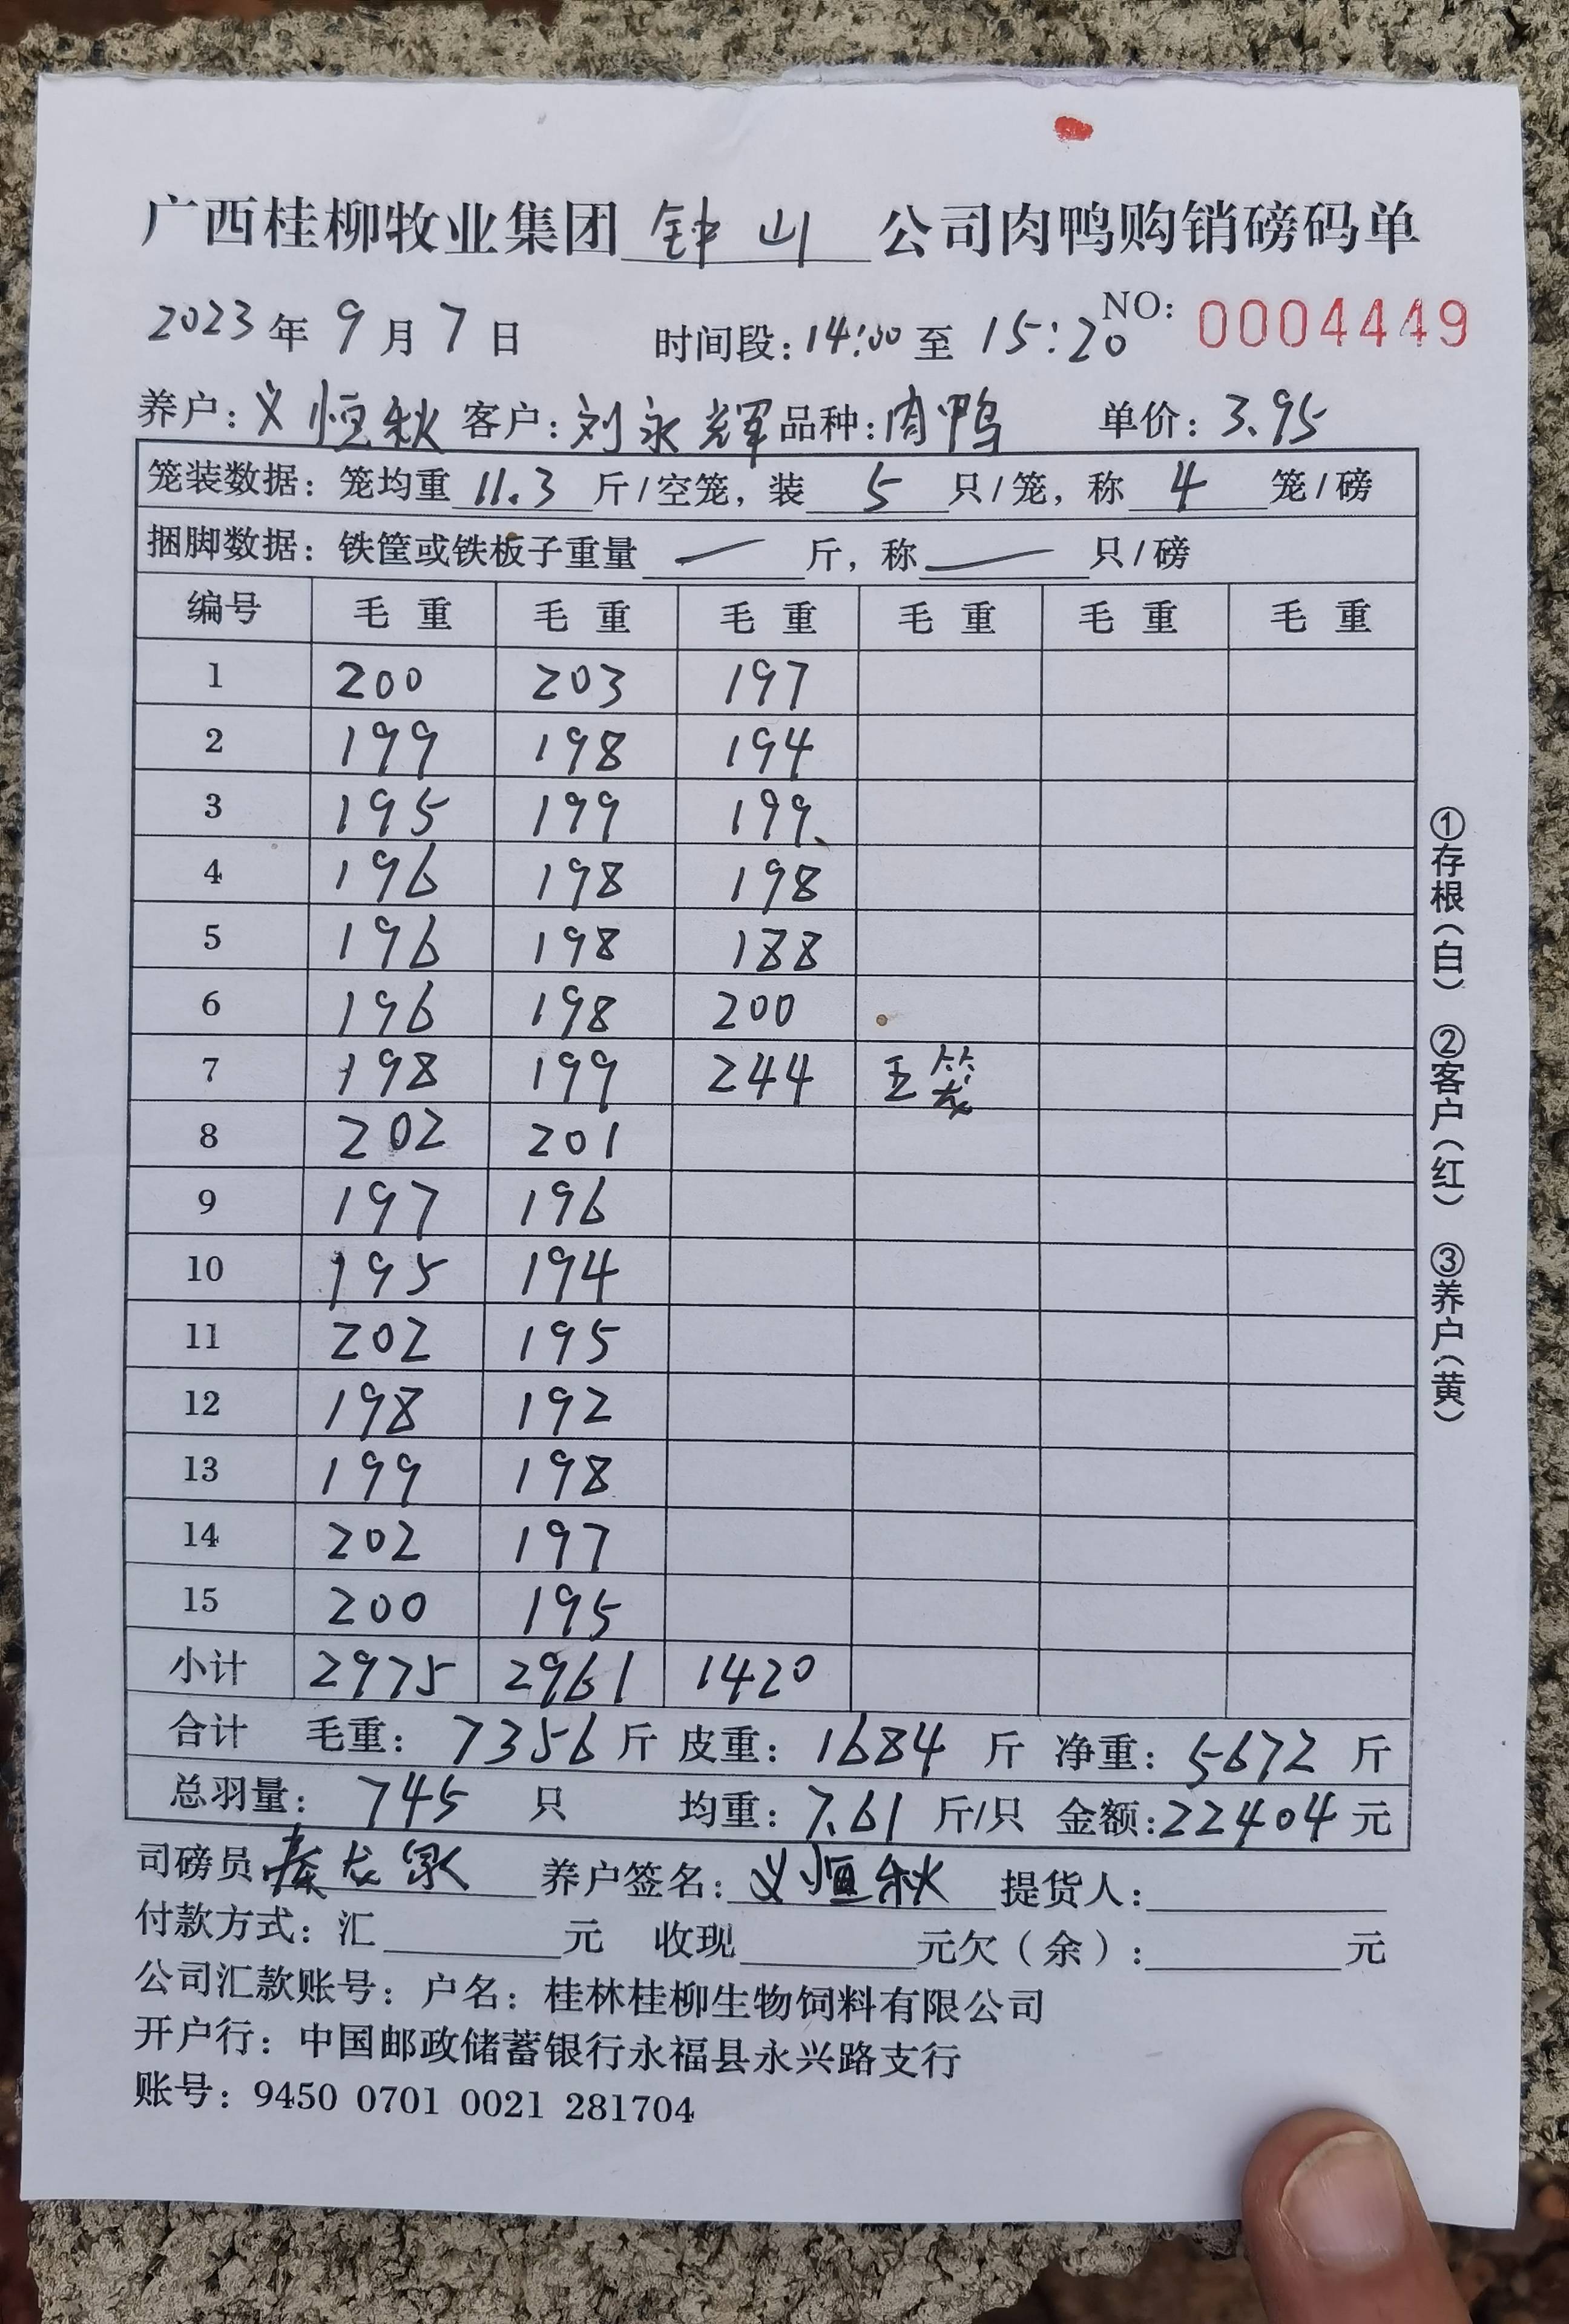 广西桂柳牧业集团 钟山 公司肉鸭购销磅码单
2023年9月7日 时间段:14:00至15:20 NO: 0004449
养户:义恒秋 客户:刘永辉 品种:肉鸭 单价:3.95
笼装数据:笼均重 11.3 斤/空笼,装 5 只/笼,称 4 笼/磅
捆脚数据:铁筐或铁板子重量 — 斤,称 — 只/磅
编号 毛重 毛重 毛重 毛重 毛重 毛重
1 200 203 197
2 199 198 194
3 195 199 199
4 196 198 198
5 196 198 188
6 196 198 200
7 198 199 244 五笼
8 202 201
9 197 196
10 195 194
11 202 195
12 198 192
13 199 198
14 202 197
15 200 195
小计 2975 2961 1420
合计 毛重:7356斤 皮重:1684斤 净重:5672斤
总羽量:745只 均重:7.61斤/只 金额:22404元
司磅员 秦龙 养户签名:义恒秋 提货人:
付款方式:汇 元 收现 元欠(余): 元
公司汇款账号:户名:桂林桂柳生物饲料有限公司
开户行:中国邮政储蓄银行永福县永兴路支行
账号:9450 0701 0021 281704
①存根(白) ②客户(红) ③养户(黄)